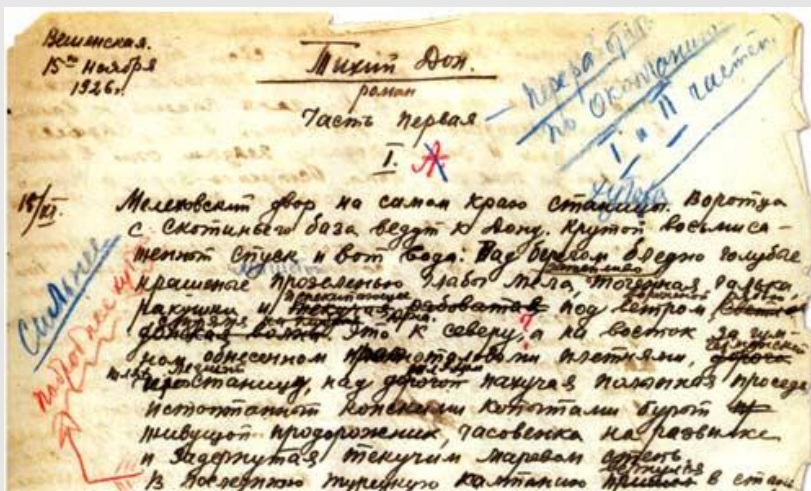 Вешенская.
15го Ноября
1926г.
Тихий Дон.
роман
Часть первая
I.
— переработать
по окончании
I и II частей.
15/XI.
хутора
Мелеховский двор на самом краю станицы. Воротца
с скотиньего база ведут к Дону. Крутой восьмиса-
женный спуск и вот вода: Над берегом бледно голубые
крашеные прозеленью глыбы мела, точенная галька,
ракушки и текучая под ветром
донская волна. Это к северу, а на восток за гум-
ном обнесенном плетнями,
над дорогой пахучая полынная проседь
истоптанный конскими копытами бурый
живущой продорожник, часовенка на развилке
и задернутая текучим маревом степь
вернулся
В последнюю турецкую кампанию пришел в стани
Сильнее
подробнее